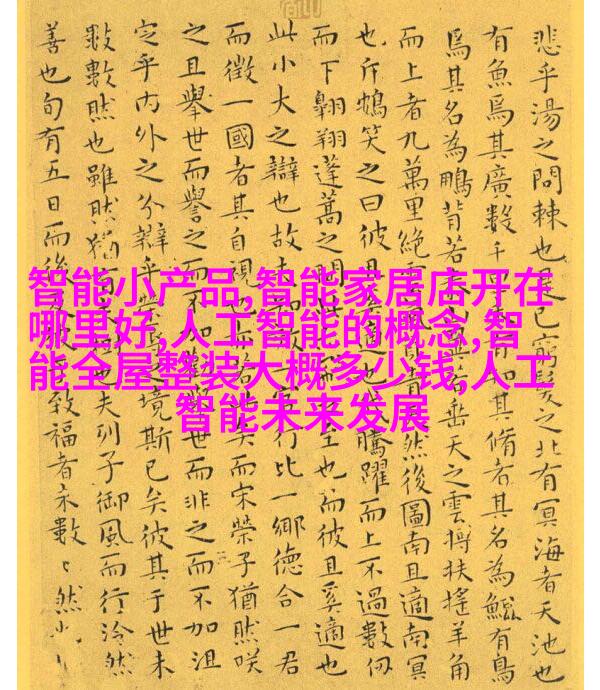 悲乎湯之問棘也是已窮髮之北有冥海者天池也
有魚焉其廣數千其脩者其名為鯤有鳥
焉其名為鵬背若垂天之雲搏扶搖羊角
而上者九萬里絕雲然後圖南且適南冥
也斥鴳笑之曰彼且騰躍而上不過數仞
而下翱翔蓬蒿之間至也而彼且奚適也
此小大之辯也故夫行比一鄉德合一君
而徵一國者其自視也矣而宋榮子猶然咲
之且舉世而譽之而不加世而非之而不加沮
定乎內外之分辯乎境斯已矣彼其于世未
數數然也雖然猶也夫列子御風而行泠然
善也旬有五日而後致福者未數々然
智能小产品,智能家居店开在
哪里好,人工智能的概念,智
能全屋整装大概多少钱,人工
智能未来发展